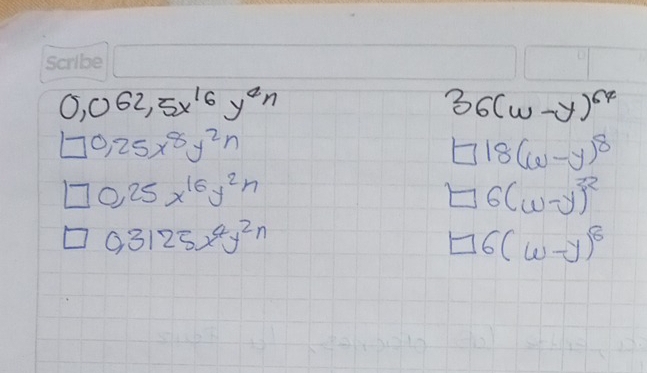 Scribe
0,062,5x¹⁶ y⁴ⁿ
□ 0,25x⁸y²ⁿ
□ 0,25 x¹⁶y²ⁿ
□ 0,3125x⁴y²ⁿ
36(w-y)⁶⁴
□ 18(w-y)⁸
□ 6(w-y)³²
□ 6(w-y)⁸